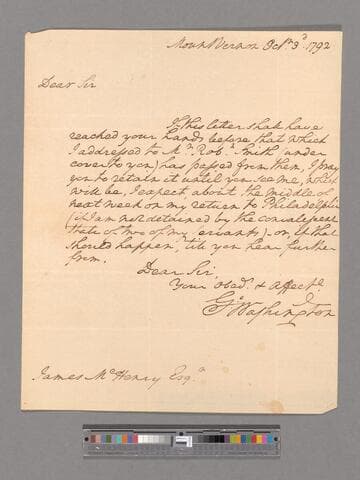 Mount Vernon Octr. 3d. 1792
Dear Sir
If this letter shall have
reached your hands before that which
I addressed to Mr. Robt. Smith (under
cover to you) has passed from them, I pray
you to retain it until you see me, which
will be, I expect about the middle of
next week on my return to Philadelphia
(if I am not detained by the convalescent
state of two of my servants)—or, if that
should happen, 'till you hear further
from.
Dear Sir,
Your Obedt. & Affecte.
Go: Washington
James McHenry Esqr.